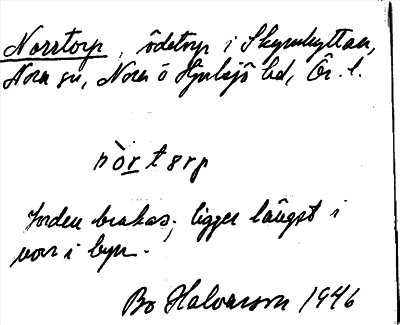 Norrtorp, ödetorp i Skyrshyttan,
Nora sn, Nora o Hjulsjö hd, Ör. l.
nòr torp
Jorden brukas; ligger längst i
norr i byn.
Bo Halvarson 1946